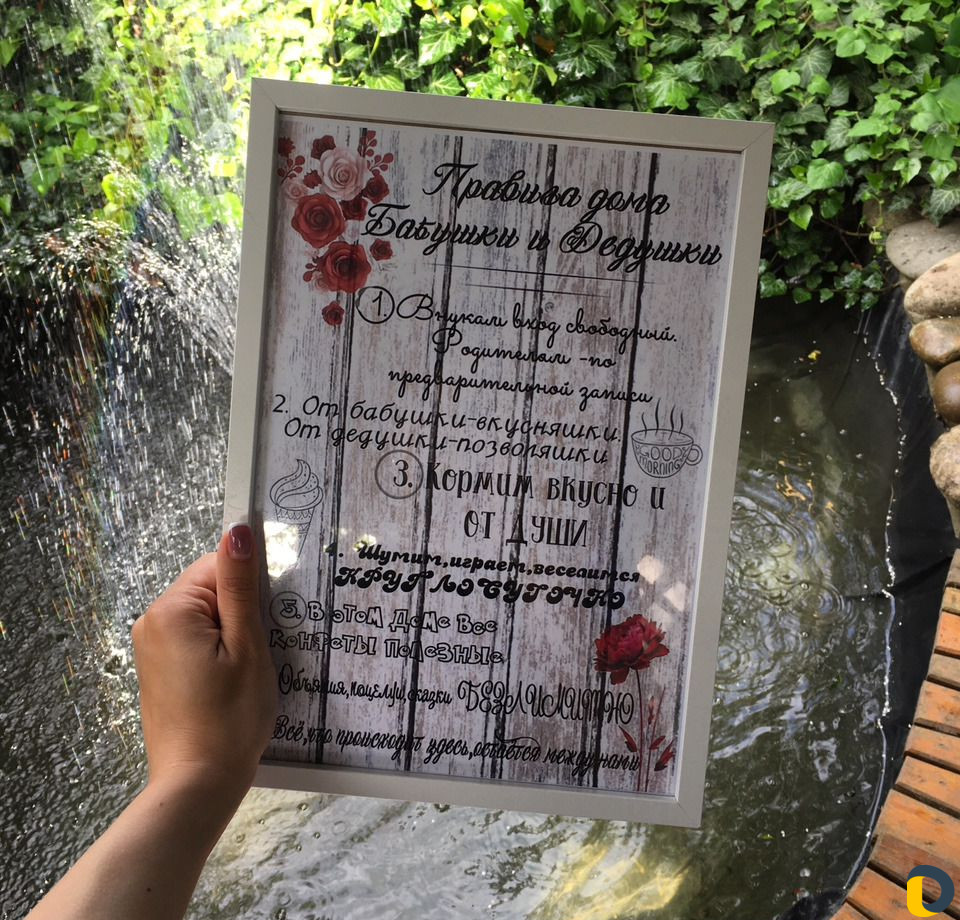 Правила дома
Бабушки и Дедушки
1. Внукам вход свободный.
Родителям -по
предварительной записи
2. От бабушки-вкусняшки.
От дедушки-позволяшки
GOOD
MORNING
3. Кормим вкусно и
от души
4. Шумим,играем,веселимся
КРУГЛОСУТОЧНО
5. В этом Доме Все
Конфеты Полезные
Объятия,поцелуи,сказки БЕЗЛИМИТНО
Всё,что происходит здесь,остаётся между нами